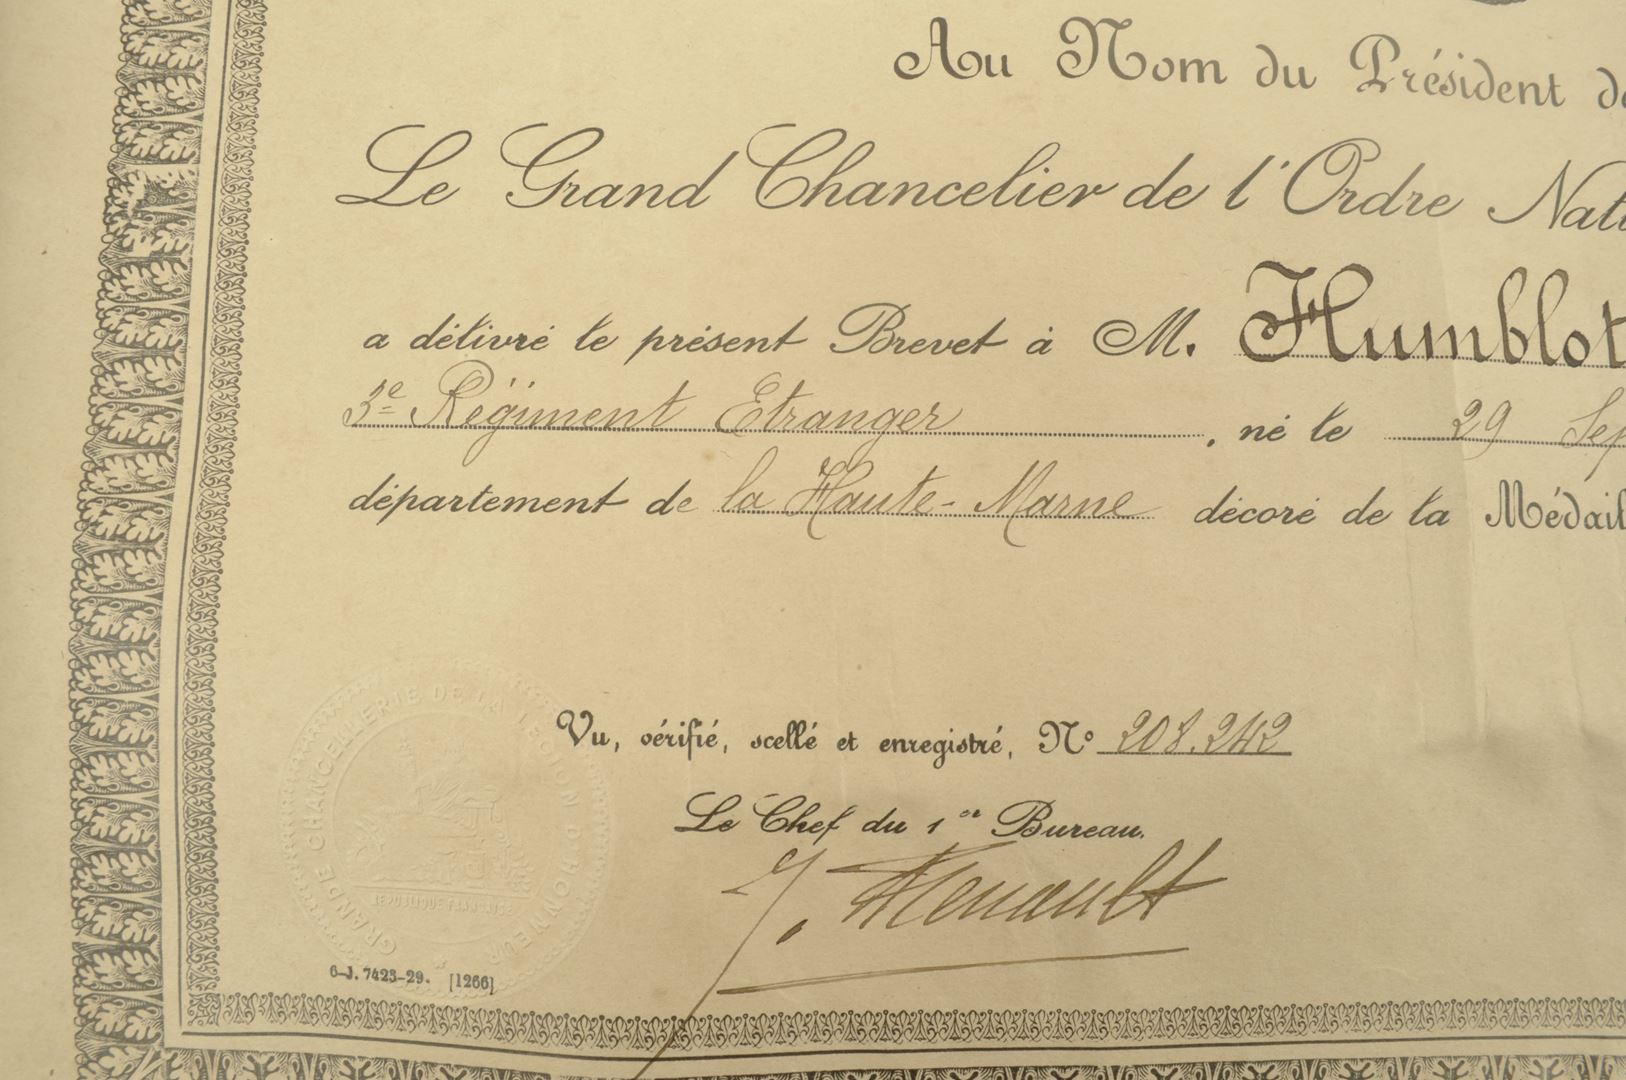 Au Nom du Président de
Le Grand Chancelier de l'Ordre Nati
a délivré le présent Brevet à M. Humblot
3e Régiment Etranger, né le 29 Sep
département de la Haute-Marne décoré de la Médail
Vu, vérifié, scellé et enregistré, No 208.242
Le Chef du 1er Bureau.
J. Renault
GRANDE CHANCELLERIE DE LA LEGION D'HONNEUR
REPUBLIQUE FRANCAISE
6-J. 7423-29. [1266]